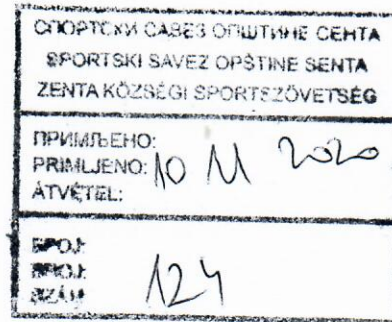 СПОРТСКИ САВЕЗ ОПШТИНЕ СЕНТА
SPORTSKI SAVEZ OPŠTINE SENTA
ZENTA KÖZSÉGI SPORTSZÖVETSÉG
ПРИМЉЕНО:
PRIMLJENO: 10 11 2020
ÁTVÉTEL:
БРОЈ:
BROJ: 124
SZÁM: